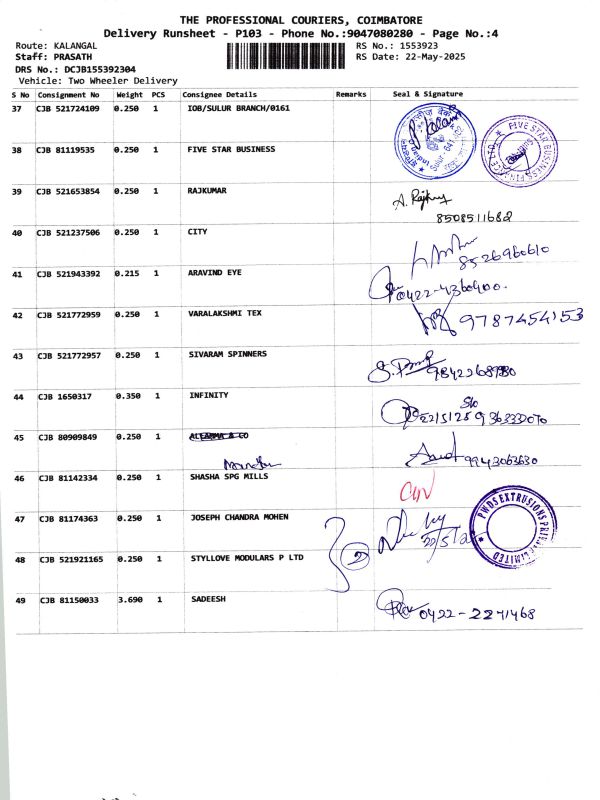 THE PROFESSIONAL COURIERS, COIMBATORE
Delivery Runsheet - P103 - Phone No.:9047080280 - Page No.:4
Route: KALANGAL
RS No.: 1553923
Staff: PRASATH
RS Date: 22-May-2025
DRS No.: DCJB155392304
Vehicle: Two Wheeler Delivery
S No Consignment No Weight PCS Consignee Details Remarks Seal & Signature
37 CJB 521724109 0.250 1 IOB/SULUR BRANCH/0161
38 CJB 81119535 0.250 1 FIVE STAR BUSINESS
FIVE STAR BUSINESS
39 CJB 521653854 0.250 1 RAJKUMAR
A. Rajkumar
8508511682
40 CJB 521237506 0.250 1 CITY
8526960610
41 CJB 521943392 0.215 1 ARAVIND EYE
0422-4360400.
42 CJB 521772959 0.250 1 VARALAKSHMI TEX
9787454153
43 CJB 521772957 0.250 1 SIVARAM SPINNERS
44 CJB 1650317 0.350 1 INFINITY
45 CJB 80909849 0.250 1
9943063630
46 CJB 81142334 0.250 1 SHASHA SPG MILLS
47 CJB 81174363 0.250 1 JOSEPH CHANDRA MOHEN
PWDS EXTRUSIONS PRIVATE LIMITED
2
48 CJB 521921165 0.250 1 STYLLOVE MODULARS P LTD
49 CJB 81150033 3.690 1 SADEESH
0422-2271468